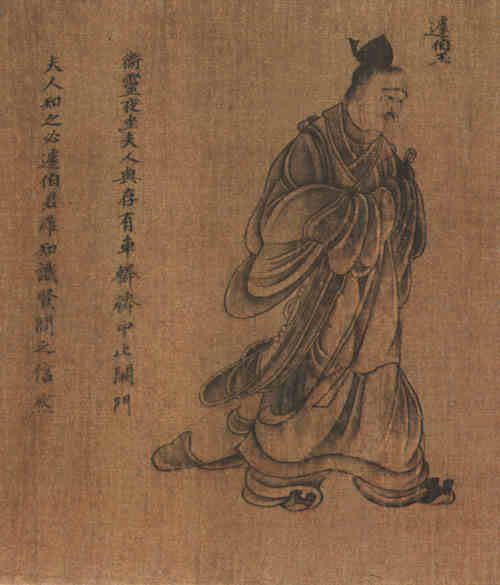 蘧伯玉
衛靈夜坐夫人與存有車轔轔中止闕門
夫人知之必蘧伯君維知識賢問之信然